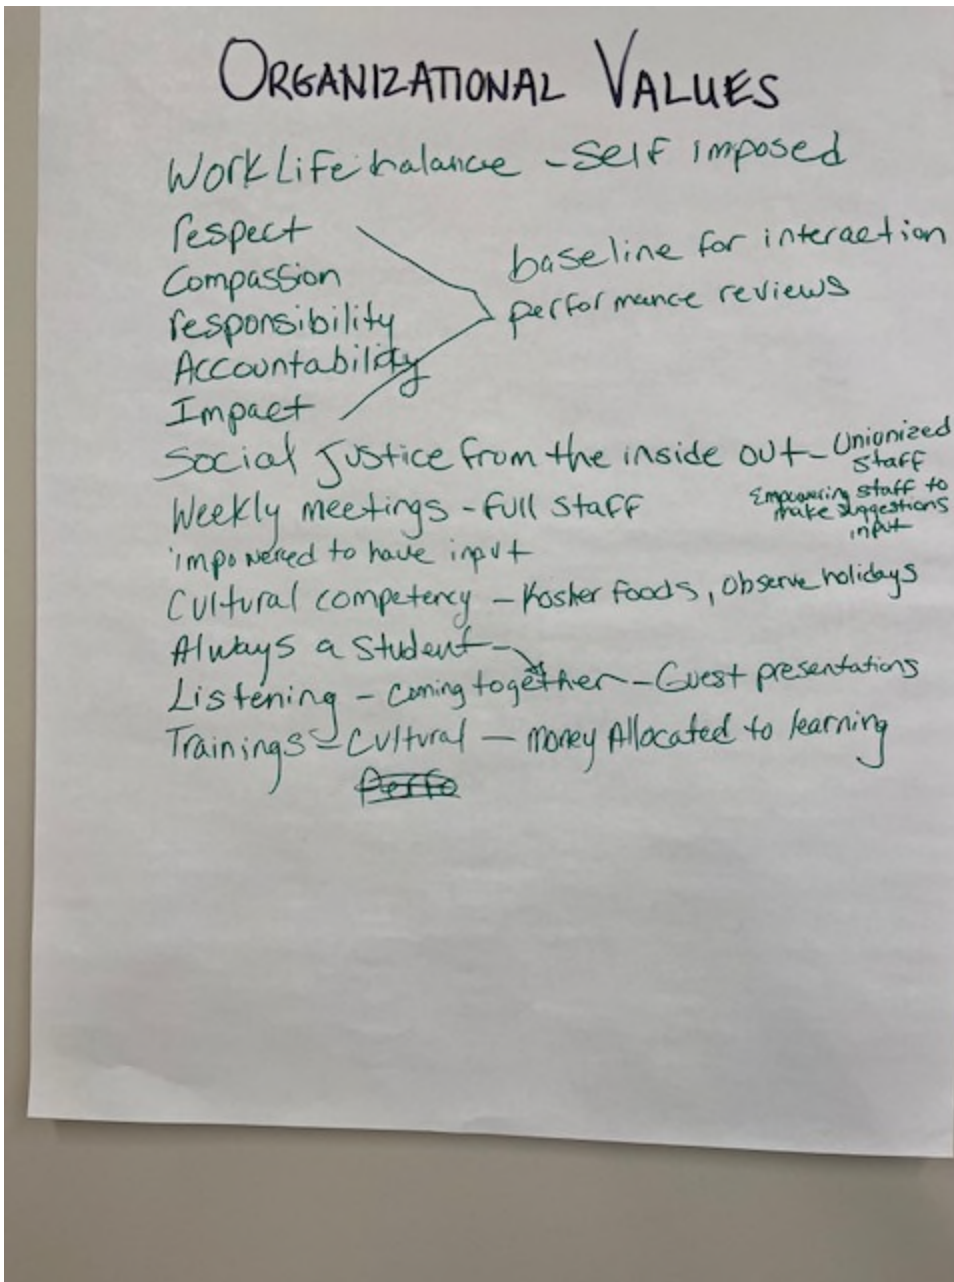 ORGANIZATIONAL VALUES
Work Life balance - Self imposed
respect
Compassion
responsibility
Accountability
Impact
baseline for interaction
performance reviews
Social Justice from the inside out - Unionized
staff
Empowering staff to
make suggestions
input
Weekly meetings - full staff
impowered to have input
Cultural competency - Kosher foods, observe holidays
Always a student -
Listening - coming together - Guest presentations
Trainings - Cultural - money Allocated to learning